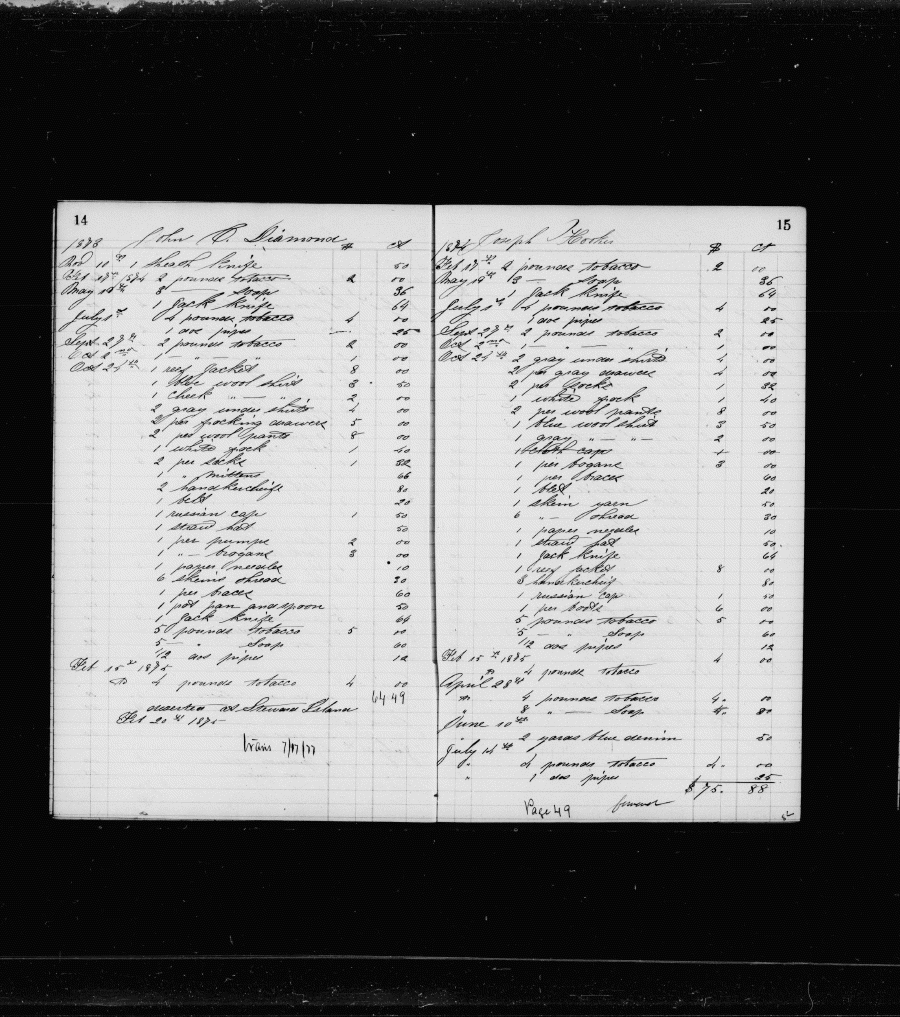 14
1873 John C. Diamond $ ct
Nov 11th 1 sheath knife 50
Feb 17th 1874 2 pounds tobacco 2 00
May 14th 3 " soap 36
1 Jack knife 64
July 1st 4 pounds tobacco 4 00
1 doz pipes 25
Sept 27th 2 pounds tobacco 2 00
Oct 2nd 1 — " — " 1 00
Oct 24th 1 reef jacket 8 00
1 blue wool shirt 3 50
1 check " — " 2 00
2 gray under shirts 4 00
2 per frocking drawers 5 00
2 per wool pants 8 00
1 white frock 1 40
2 per socks 1 32
1 " mittens 66
2 handkercheifs 80
1 belt 20
1 russian cap 1 50
1 straw hat 50
1 per pumps 2 00
1 " — brogans 3 00
1 papers needles 10
6 skeins thread 30
1 per braces 60
1 pot pan and spoon 50
1 Jack knife 64
5 pounds tobacco 5 00
5 " soap 60
1/2 doz pipes 12
Feb 15th 1875
To 4 pounds tobacco 4 00
64 49
deserted at Steward Island
Feb 20th 1875
trans 7/17/77
15
1874 Joseph $ ct
Feb 17th 2 pounds tobacco 2 00
May 14th 3 — soap 36
1 Jack knife 64
July 1st 4 pounds tobacco 4 00
1 doz pipes 25
Sept 27th 2 pounds tobacco 2 00
Oct 2nd 1 — " — " 1 00
Oct 24th 2 gray under shirts 4 00
2 per gray drawers 4 00
2 per socks 1 32
1 white frock 1 40
2 per wool pants 8 00
1 blue wool shirt 3 50
1 gray " — " — 2 00
1 cloth cap 00
1 per brogans 3 00
1 per braces 60
1 belt 20
1 skein yarn 50
6 " — thread 30
1 papers needles 10
1 straw hat 50
1 Jack knife 64
1 reef jacket 8 00
8 handkercheif 80
1 russian cap 1 50
1 per boots 6 00
5 pounds tobacco 5 00
5 — " soap 60
1/2 doz pipes 12
Feb 15th 1875 4 00
To 4 pounds tobacco
April 28th
" 4 pounds tobacco 4 00
" 8 " — soap 80
June 10th
" 2 yards blue denim 50
July 14th
" 4 pounds tobacco 4 00
" 1 doz pipes 25
$ 75. 88
Page 49